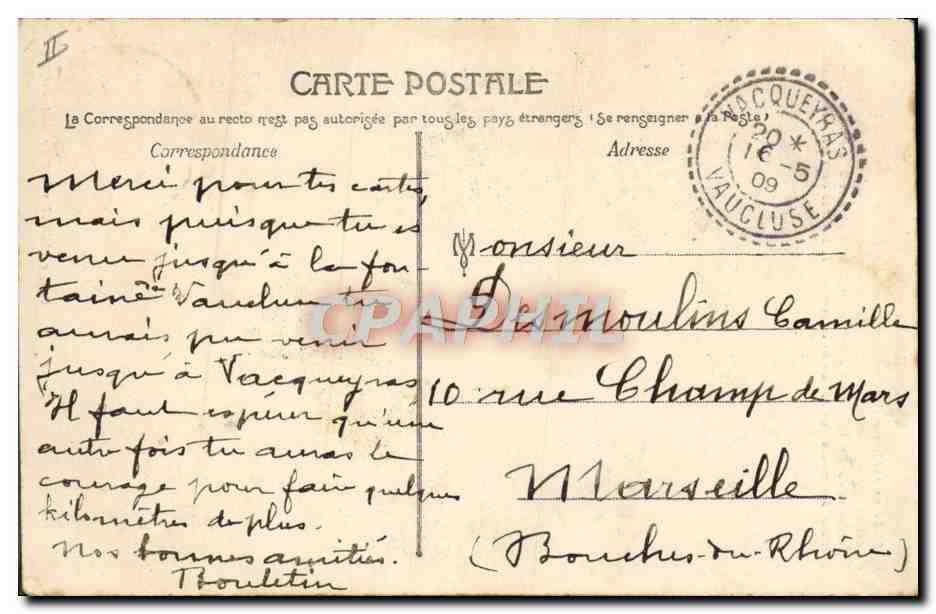 II
CARTE POSTALE
La Correspondance au recto n'est pas autorisée par tous les pays étrangers (Se renseigner à la Poste)
Correspondance
Adresse
VACQUEYRAS
20 *
16 -5
09
VAUCLUSE
Merci pour tes cartes,
mais puisque tu es
venu jusqu'à la fon-
taine Vaucluse tu
aurais pu venir
jusqu'à Vacqueyras
Il faut espérer qu'une
autre fois tu auras le
courage pour faire quelques
kilomètres de plus.
Nos bonnes amitiés.
Monsieur
Desmoulins Camille
10 rue Champ de Mars
Marseille
(Bouches-du-Rhône)
CPAPHIL